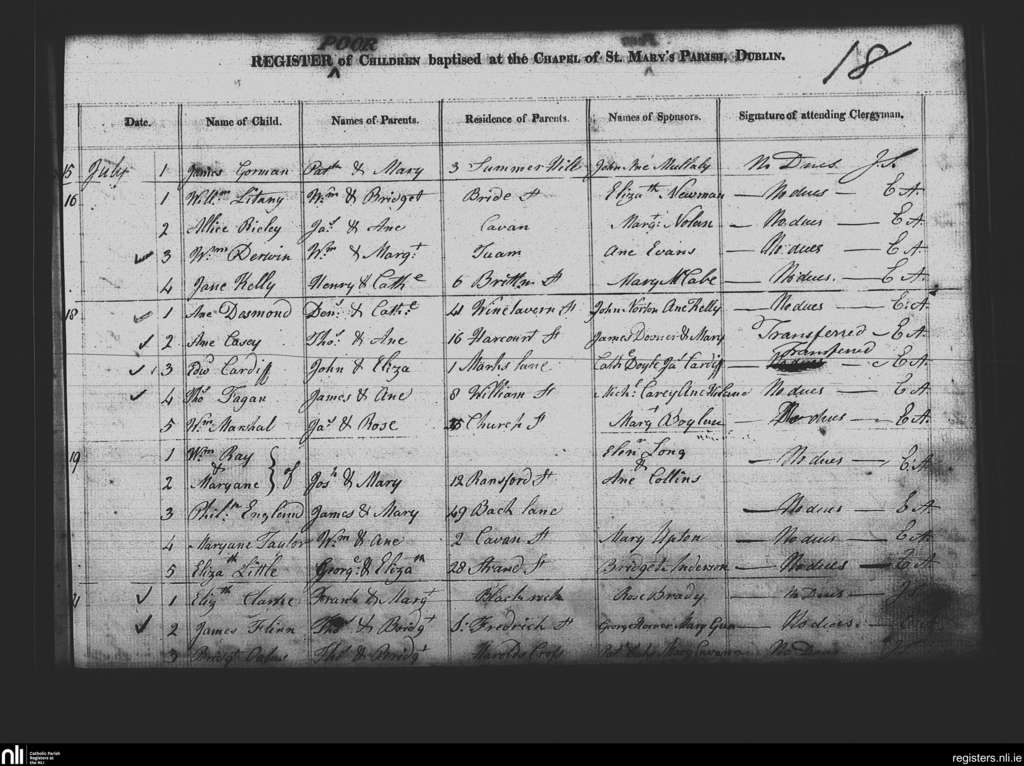 POOR
REGISTER of CHILDREN baptised at the CHAPEL of ST. MARY'S PARISH, DUBLIN.
18
Date. Name of Child. Names of Parents. Residence of Parents. Names of Sponsors. Signature of attending Clergyman.
15 July 1 James Gorman Patk & Mary 3 Summer Hill John Mullaly No Dues
16 1 Willm Litany Wm & Bridget Bride St Elizath Newman — No dues — E A.
2 Allice Rieley Jas & Ane Cavan Margt Nolan — No dues — E A.
3 Wm Derwin Wm & Margt Tuam Ane Evans — No dues — E A.
4 Jane Kelly Henry & Cathe 6 Brittn St Mary McCabe — No dues. — E A.
18 1 Ane Desmond Den: & Cathe 4 Winetavern St John Norton Ane Kelly — No dues — E. A.
2 Ane Casey Thos & Ane 16 Harcourt St James & Mary Transferred — E A.
3 Edwd Cardiff John & Eliza 1 Marks lane Cathe Doyle Jas Cardiff — Transferred — E A.
4 Thos Fagan James & Ane 8 William St Michl Carey Ane No dues — E A.
5 Wm Marshal Jas & Rose Church St Mary — No dues — E A.
19 1 Wm Ray Elinr Long
& } of & — No dues — E A.
2 Maryane Josh & Mary 12 Ransford St Ane Collins
3 Philn England James & Mary 49 Back lane — No dues — E A
4 Maryane Taylor Wm & Ane 2 Cavan St Mary Upton — No dues — E A.
5 Elizath Little George & Elizath 28 Strand St Bridget Anderson — No dues — E A.
1 Elizth Clarke Frank & Margt Blackrock Rose Brady — No Dues —
2 James Flinn Thos & Bridgt Fredrick St George Mary — No dues
3 Bridgt Thos & Bridgt Harolds Cross Mary No Dues
nli
Catholic Parish
Registers at
the NLI
registers.nli.ie